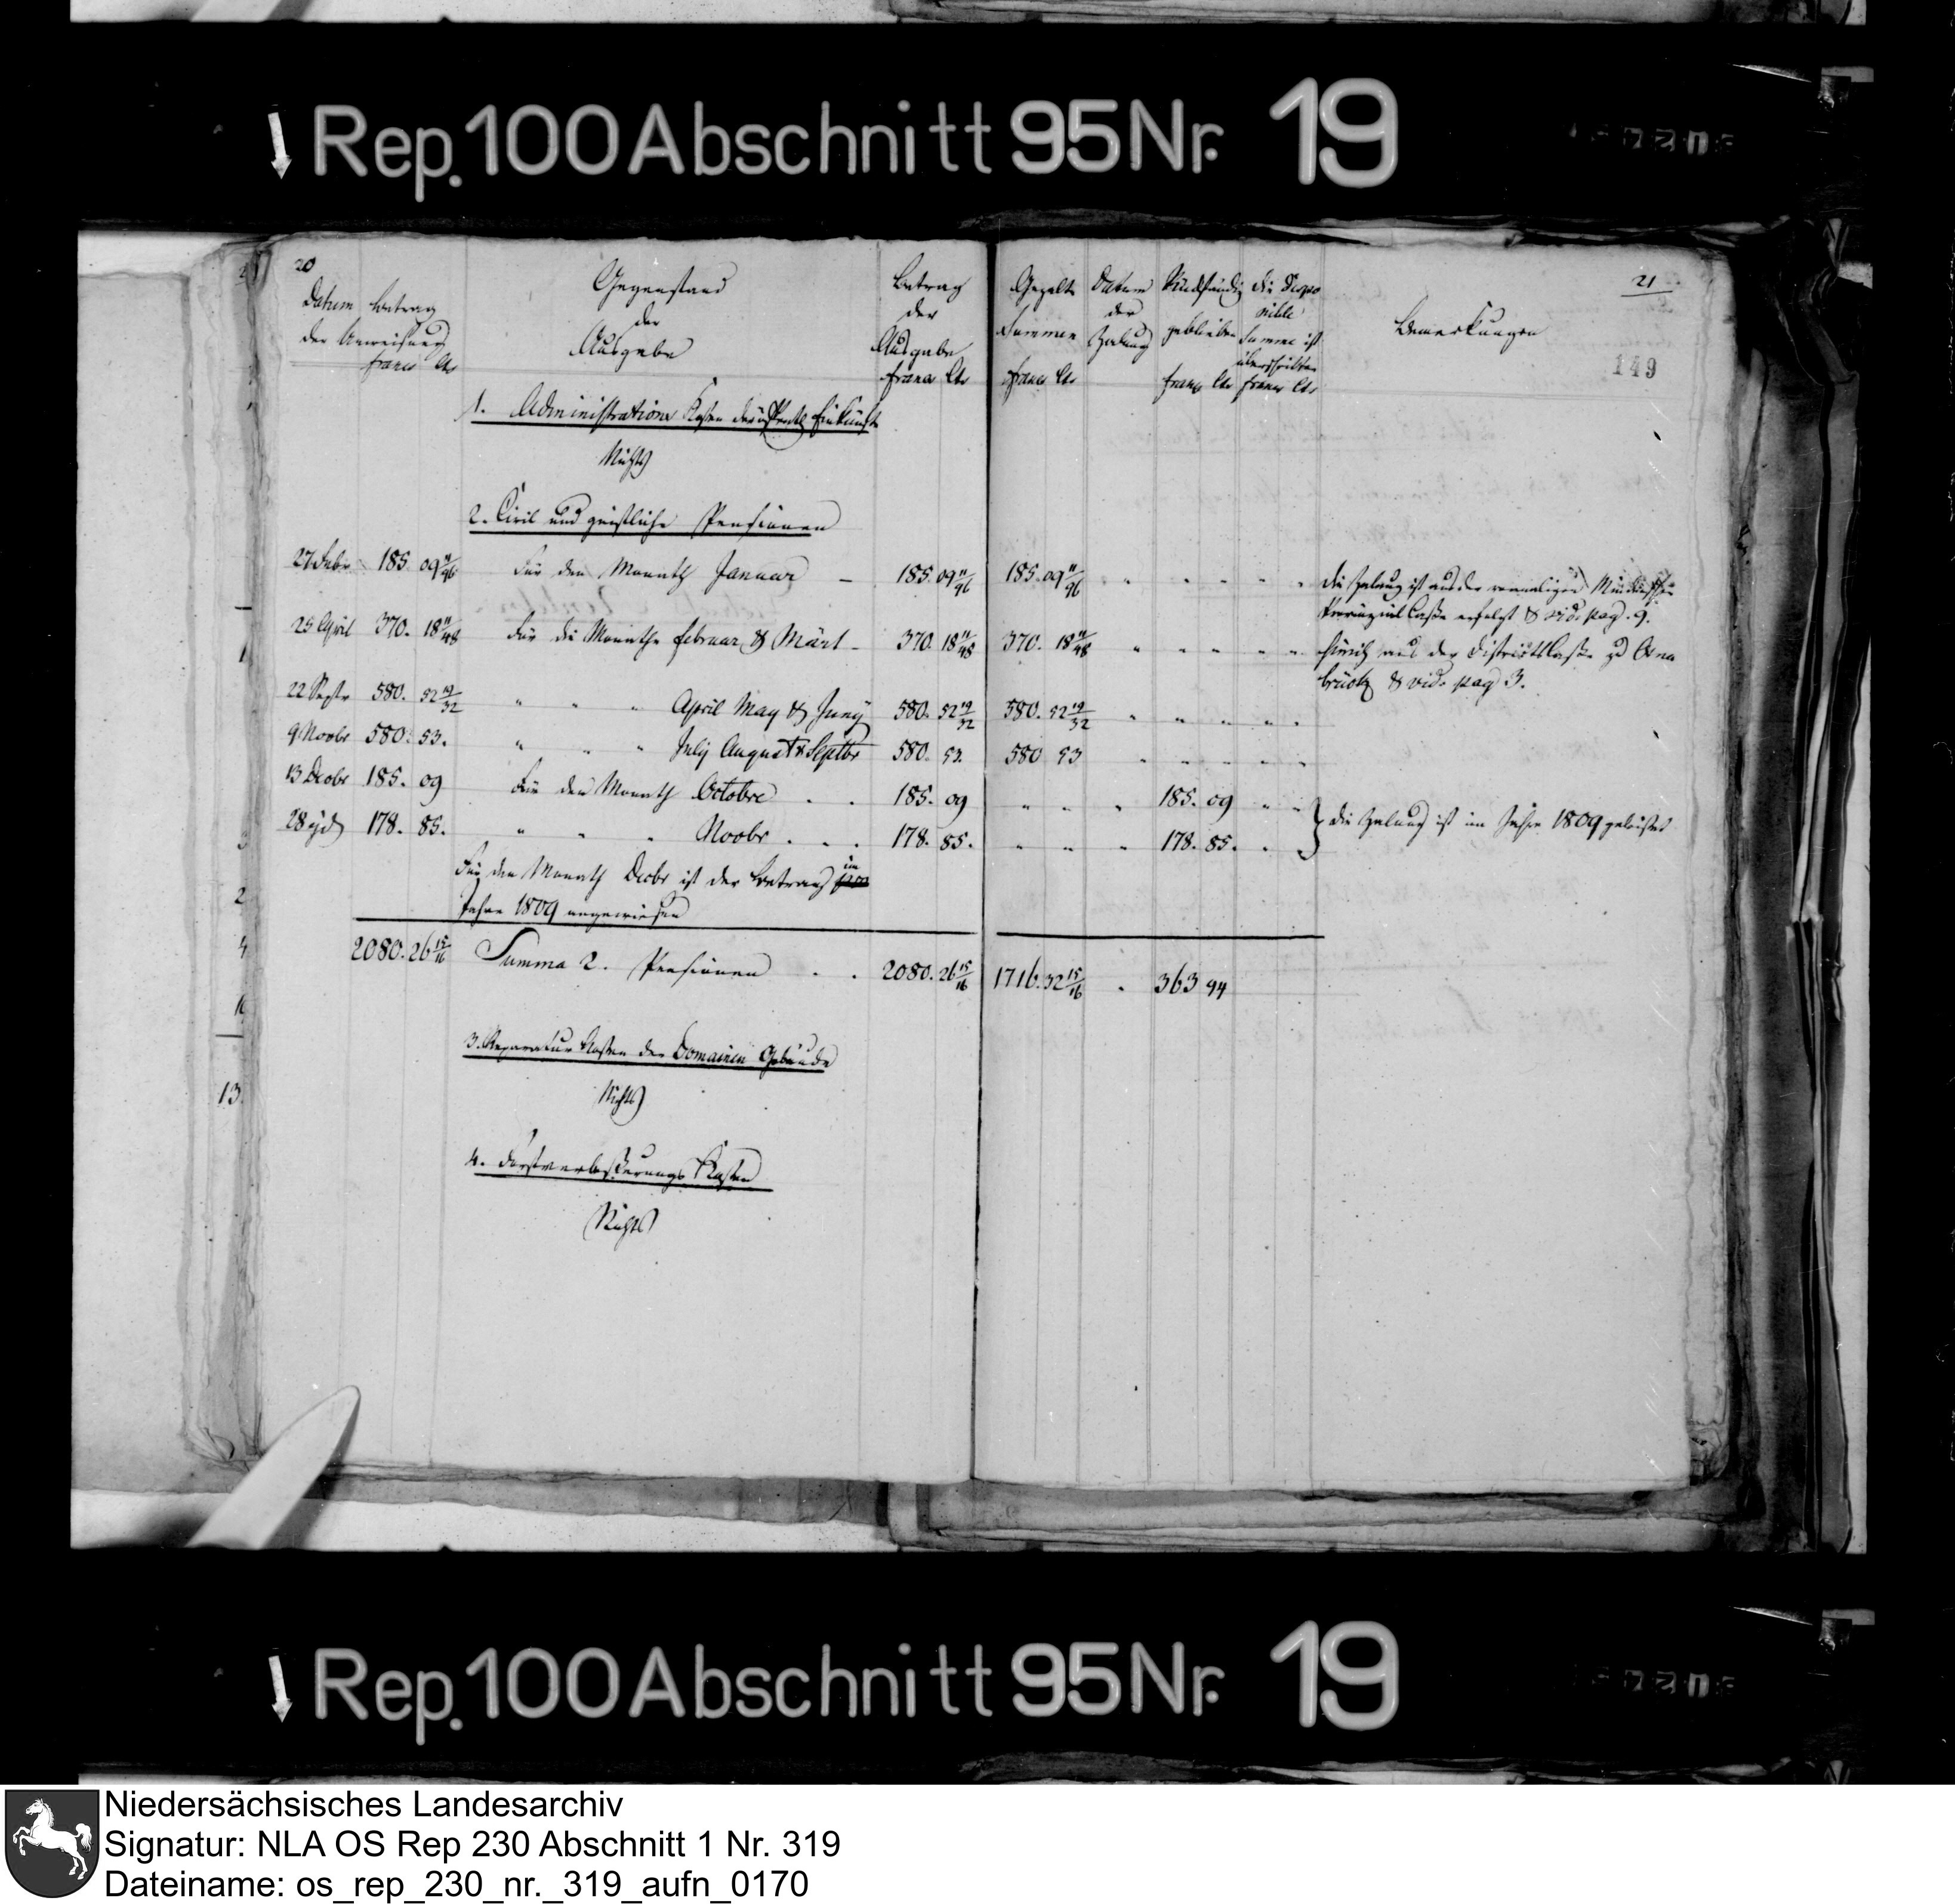 Rep. 100 Abschnitt 95 Nr. 19
20
Datum Betrag
der Anweisung
francs Cts
Gegenstand
der
Ausgabe
Betrag
der
Ausgabe
francs Cts
1. Administrations Kosten der öffentl. Einkünfte
Nichts
2. Civil und geistliche Pensionen
27 Febr 185. 09 11/96 Für den Monath Januar – 185. 09 11/96
25 April 370. 18 11/48 Für die Monathe Februar & Märt – 370. 18 11/48
22 Septr 580. 52 19/32 " " " April May & Juny 580. 52 19/32
9 Novbr 580. 53. " " " July August & Septbr 580. 53.
13 Decbr 185. 09 Für den Monath Octobre . . 185. 09
28 ejd 178. 85. " " " Novbr . . . 178. 85.
Für den Monath Decbr ist der Betrag im
Jahre 1809 angewiesen
2080. 26 15/16 Summa 2. Pensionen . . 2080. 26 15/16
3. Reparatur Kosten der Domainen Gebäude
Nichts
4. Forstverbesserungs Kosten
Nichts
21
149
Gezalte
Summen
francs Cts
Datum
der
Zalung
Rückständig
geblieben
francs Cts
die dispo
nible
Summe ist
überschritten
francs Cts
Bemerkungen
185. 09 11/96 " " " " " die Zalung ist aus der vormaligen
Provinzial Casse erfolgt & vid. pag. 9.
370. 18 11/48 " " " " " hierich aus der Districts Casse zu Osna
brück & vid. pag 3.
580. 52 19/32 " " " " "
580 53 " " " " "
" " " 185. 09 " "
" " " 178. 85. " die Zalung ist im Jahre 1809 geleistet
1716. 32 15/16 " 363 94
2
4
13
Rep. 100 Abschnitt 95 Nr. 19
Niedersächsisches Landesarchiv
Signatur: NLA OS Rep 230 Abschnitt 1 Nr. 319
Dateiname: os_rep_230_nr._319_aufn_0170